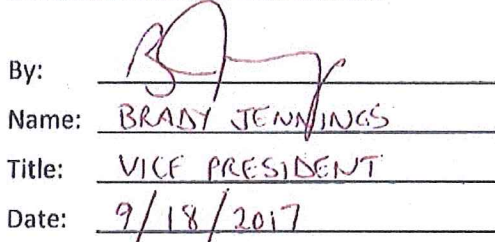 By:
Name: BRADY JENNINGS
Title: VICE PRESIDENT
Date: 9/18/2017